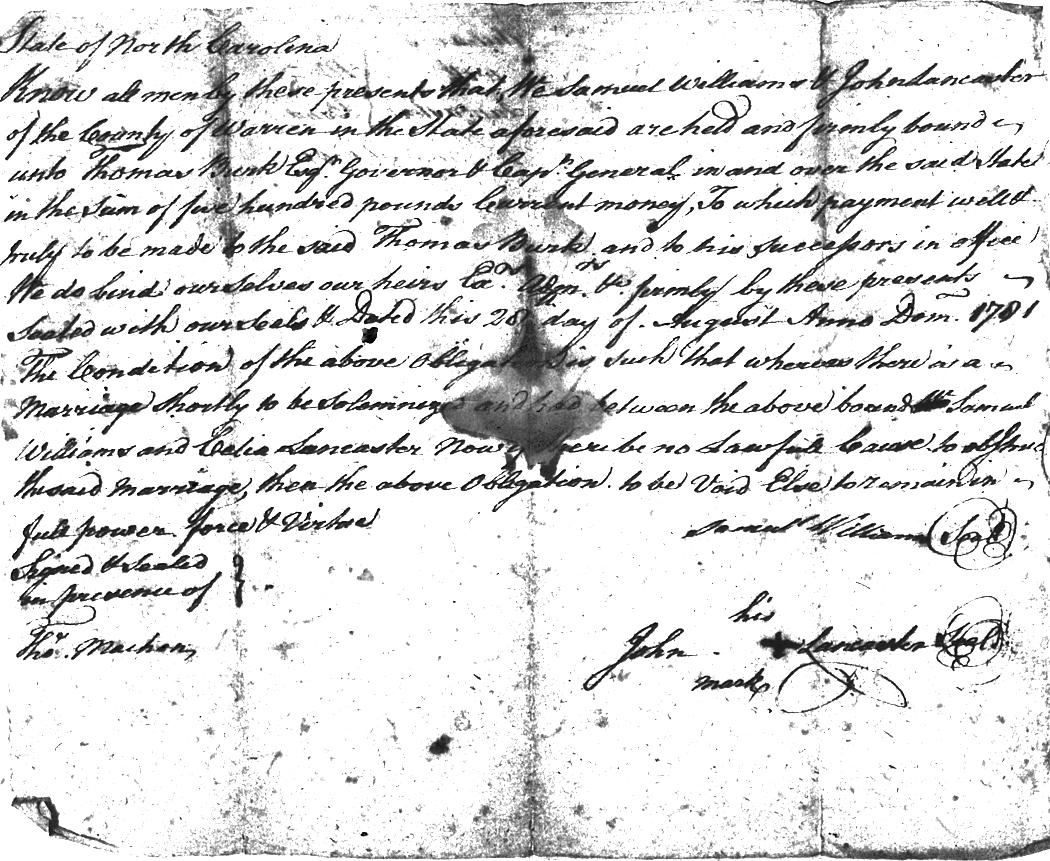 State of North Carolina
Know all men by these presents that, We Samuel Williams & John Lancaster
of the County of Warren in the State aforesaid are held and firmly bound
unto Thomas Burk Esqr. Governor & Capn. General in and over the said State
in the Sum of five hundred pounds Current money, To which payment well &
truly to be made to the said Thomas Burk and to his successors in office
We do bind our selves our heirs Exrs. Admrs. &c. firmly by these presents
Sealed with our seals & Dated this 28 day of August Anno Dom. 1781
The Condition of the above Obligation is such that whereas there is a
Marriage shortly to be solemnized and had between the above bound Samuel
Williams and Celia Lancaster Now if there be no Lawfull Cause to obstruct
the said Marriage, then the above Obligation to be Void Else to remain in
full power force & Virtue
Samull Williams Seal
Signed & Sealed
in presence of
Thos. Machen
his
John + Lancaster Seal
mark